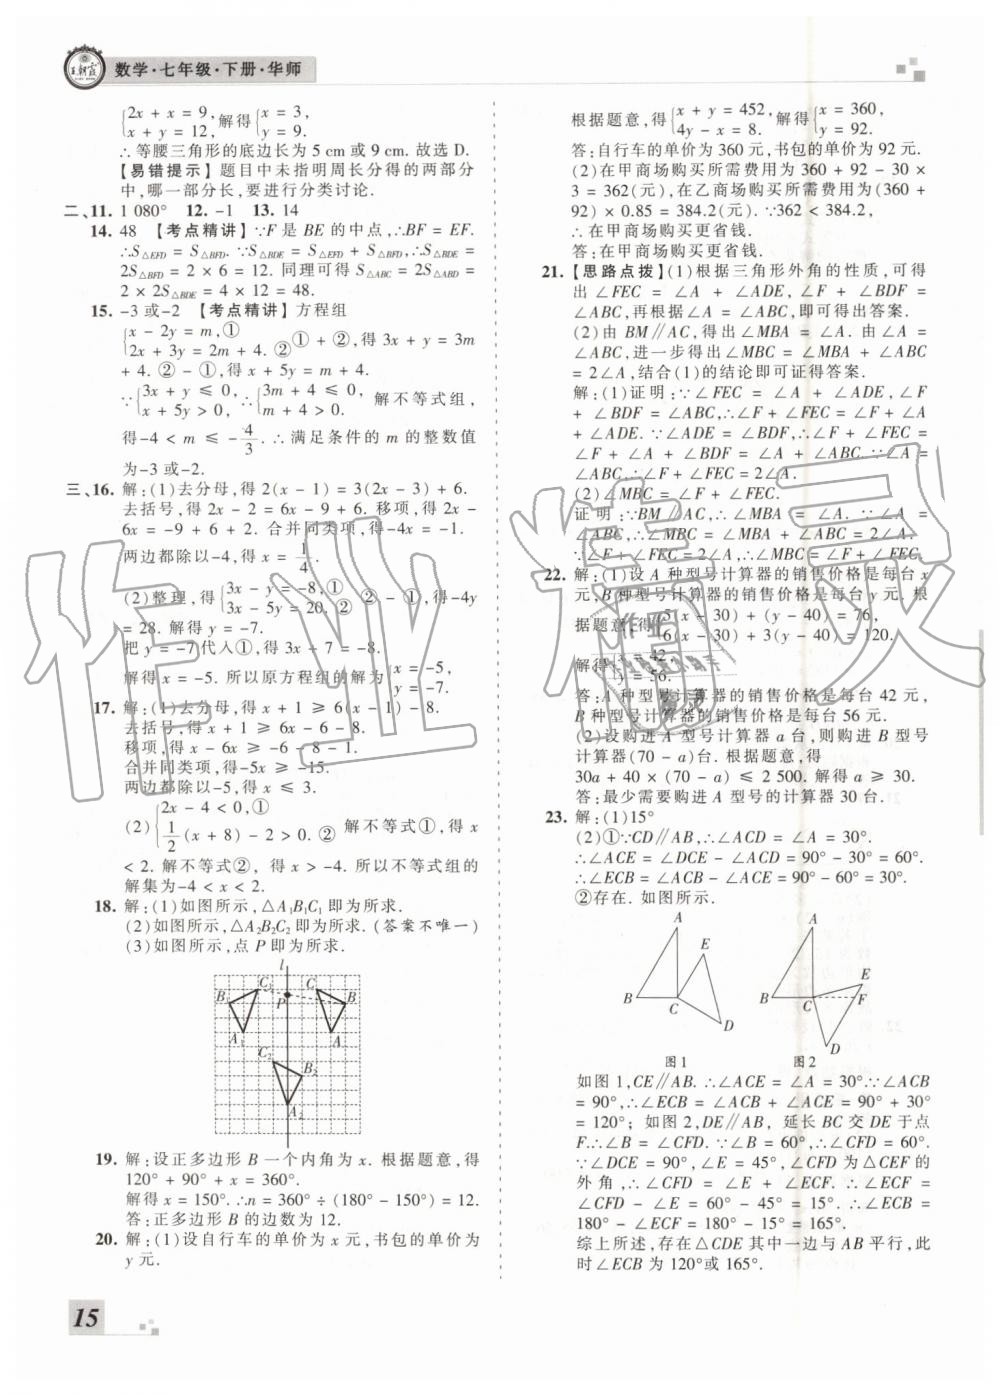 王朝霞
数学·七年级·下册·华师
{2x + x = 9, x + y = 12, 解得{x = 3, y = 9.
∴等腰三角形的底边长为 5 cm或9 cm. 故选 D.
【易错提示】题目中未指明周长分得的两部分
中,哪一部分长,要进行分类讨论.
二、11. 1 080° 12. -1 13. 14
14. 48 【考点精讲】∵F 是 BE 的中点,∴BF = EF.
∴S△EFD = S△BFD. ∵S△BDE = S△EFD + S△BFD,∴S△BDE =
2S△BFD = 2 × 6 = 12. 同理可得 S△ABC = 2S△ABD =
2 × 2S△BDE = 4 × 12 = 48.
15. -3 或-2 【考点精讲】方程组
{x - 2y = m,① 2x + 3y = 2m + 4. ② ① + ②,得 3x + y = 3m
+ 4. ② - ①,得 x + 5y = m + 4.
∵{3x + y ≤ 0, x + 5y > 0, ∴{3m + 4 ≤ 0, m + 4 > 0. 解不等式组,
得-4 < m ≤ -4/3. ∴满足条件的 m 的整数值
为-3 或-2.
三、16. 解:(1)去分母,得 2(x - 1) = 3(2x - 3) + 6.
去括号,得 2x - 2 = 6x - 9 + 6. 移项,得 2x -
6x = -9 + 6 + 2. 合并同类项,得-4x = -1.
两边都除以-4,得 x = 1/4.
(2)整理,得{3x - y = -8,① 3x - 5y = 20. ② ② - ①,得-4y
= 28. 解得 y = -7.
把 y = -7代入①,得 3x + 7 = -8.
解得 x = -5. 所以原方程组的解为{x = -5, y = -7.
17. 解:(1)去分母,得 x + 1 ≥ 6(x - 1) - 8.
去括号,得 x + 1 ≥ 6x - 6 - 8.
移项,得 x - 6x ≥ -6 - 8 - 1.
合并同类项,得-5x ≥ -15.
两边都除以-5,得 x ≤ 3.
(2){2x - 4 < 0,① 1/2(x + 8) - 2 > 0. ② 解不等式①,得 x
< 2. 解不等式②,得 x > -4. 所以不等式组的
解集为-4 < x < 2.
18. 解:(1)如图所示,△A1B1C1 即为所求.
(2)如图所示,△A2B2C2 即为所求.(答案不唯一)
(3)如图所示,点 P 即为所求.
l
B1 C1 P C B
A1 A
C2 B2
A2
19. 解:设正多边形 B 一个内角为 x. 根据题意,得
120° + 90° + x = 360°.
解得 x = 150°. ∴n = 360° ÷ (180° - 150°) = 12.
答:正多边形 B 的边数为 12.
20. 解:(1)设自行车的单价为 x 元,书包的单价为
y 元.
根据题意,得{x + y = 452, 4y - x = 8. 解得{x = 360, y = 92.
答:自行车的单价为 360 元,书包的单价为 92 元.
(2)在甲商场购买所需费用为 360 + 92 - 30
× 3 = 362(元),在乙商场购买所需费用为(360 +
92) × 0.85 = 384.2(元). ∵362 < 384.2,
∴在甲商场购买更省钱.
答:在甲商场购买更省钱.
21. 【思路点拨】(1)根据三角形外角的性质,可得
出 ∠FEC = ∠A + ∠ADE, ∠F + ∠BDF =
∠ABC,再根据∠A = ∠ABC,即可得出答案.
(2)由 BM∥AC,得出∠MBA = ∠A. 由∠A =
∠ABC,进一步得出∠MBC = ∠MBA + ∠ABC
= 2∠A,结合(1)的结论即可证得答案.
解:(1)证明:∵∠FEC = ∠A + ∠ADE,∠F
+ ∠BDF = ∠ABC,∴∠F + ∠FEC = ∠F + ∠A
+ ∠ADE. ∵∠ADE = ∠BDF,∴∠F + ∠FEC =
∠F + ∠A + ∠BDF = ∠A + ∠ABC. ∵∠A =
∠ABC,∴∠F + ∠FEC = 2∠A.
(2)∠MBC = ∠F + ∠FEC.
证明:∵BM∥AC,∴∠MBA = ∠A. ∵∠A =
∠ABC,∴∠MBC = ∠MBA + ∠ABC = 2∠A.
∵∠F + ∠FEC = 2∠A,∴∠MBC = ∠F + ∠FEC.
22. 解:(1)设 A 种型号计算器的销售价格是每台 x
元,B 种型号计算器的销售价格是每台 y 元. 根
据题意,得{5(x - 30) + (y - 40) = 76, 6(x - 30) + 3(y - 40) = 120.
解得{x = 42, y = 56.
答:A 种型号计算器的销售价格是每台 42 元,
B 种型号计算器的销售价格是每台 56 元.
(2)设购进 A 型号计算器 a 台,则购进 B 型号
计算器(70 - a)台. 根据题意,得
30a + 40 × (70 - a) ≤ 2 500. 解得 a ≥ 30.
答:最少需要购进 A 型号的计算器 30 台.
23. 解:(1)15°
(2)①∵CD∥AB,∴∠ACD = ∠A = 30°.
∴∠ACE = ∠DCE - ∠ACD = 90° - 30° = 60°.
∴∠ECB = ∠ACB - ∠ACE = 90° - 60° = 30°.
②存在. 如图所示.
A E B C D
图1
A E B C F D
图2
如图 1,CE∥AB. ∴∠ACE = ∠A = 30°∵∠ACB
= 90°,∴∠ECB = ∠ACB + ∠ACE = 90° + 30°
= 120°; 如图 2,DE∥AB, 延长 BC 交 DE 于点
F. ∴∠B = ∠CFD. ∵∠B = 60°,∴∠CFD = 60°.
∵∠DCE = 90°, ∠E = 45°, ∠CFD 为△CEF 的
外角,∴∠CFD = ∠E + ∠ECF. ∴∠ECF =
∠CFD - ∠E = 60° - 45° = 15°. ∴∠ECB =
180° - ∠ECF = 180° - 15° = 165°.
综上所述,存在△CDE 其中一边与 AB 平行,此
时∠ECB 为 120°或 165°.
15
作业精灵